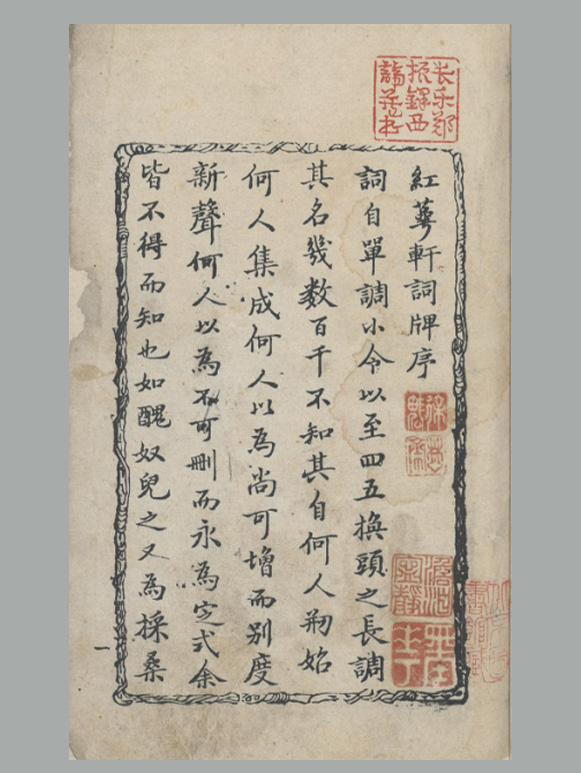 紅蕚軒詞牌序
詞自單調小令以至四五換頭之長調
其名幾數百千不知其自何人剏始
何人集成何人以為尚可增而別度
新聲何人以為不可刪而永為定式余
皆不得而知也如醜奴兒之又為採桑
一
長樂鄭
振鐸西
諦藏書